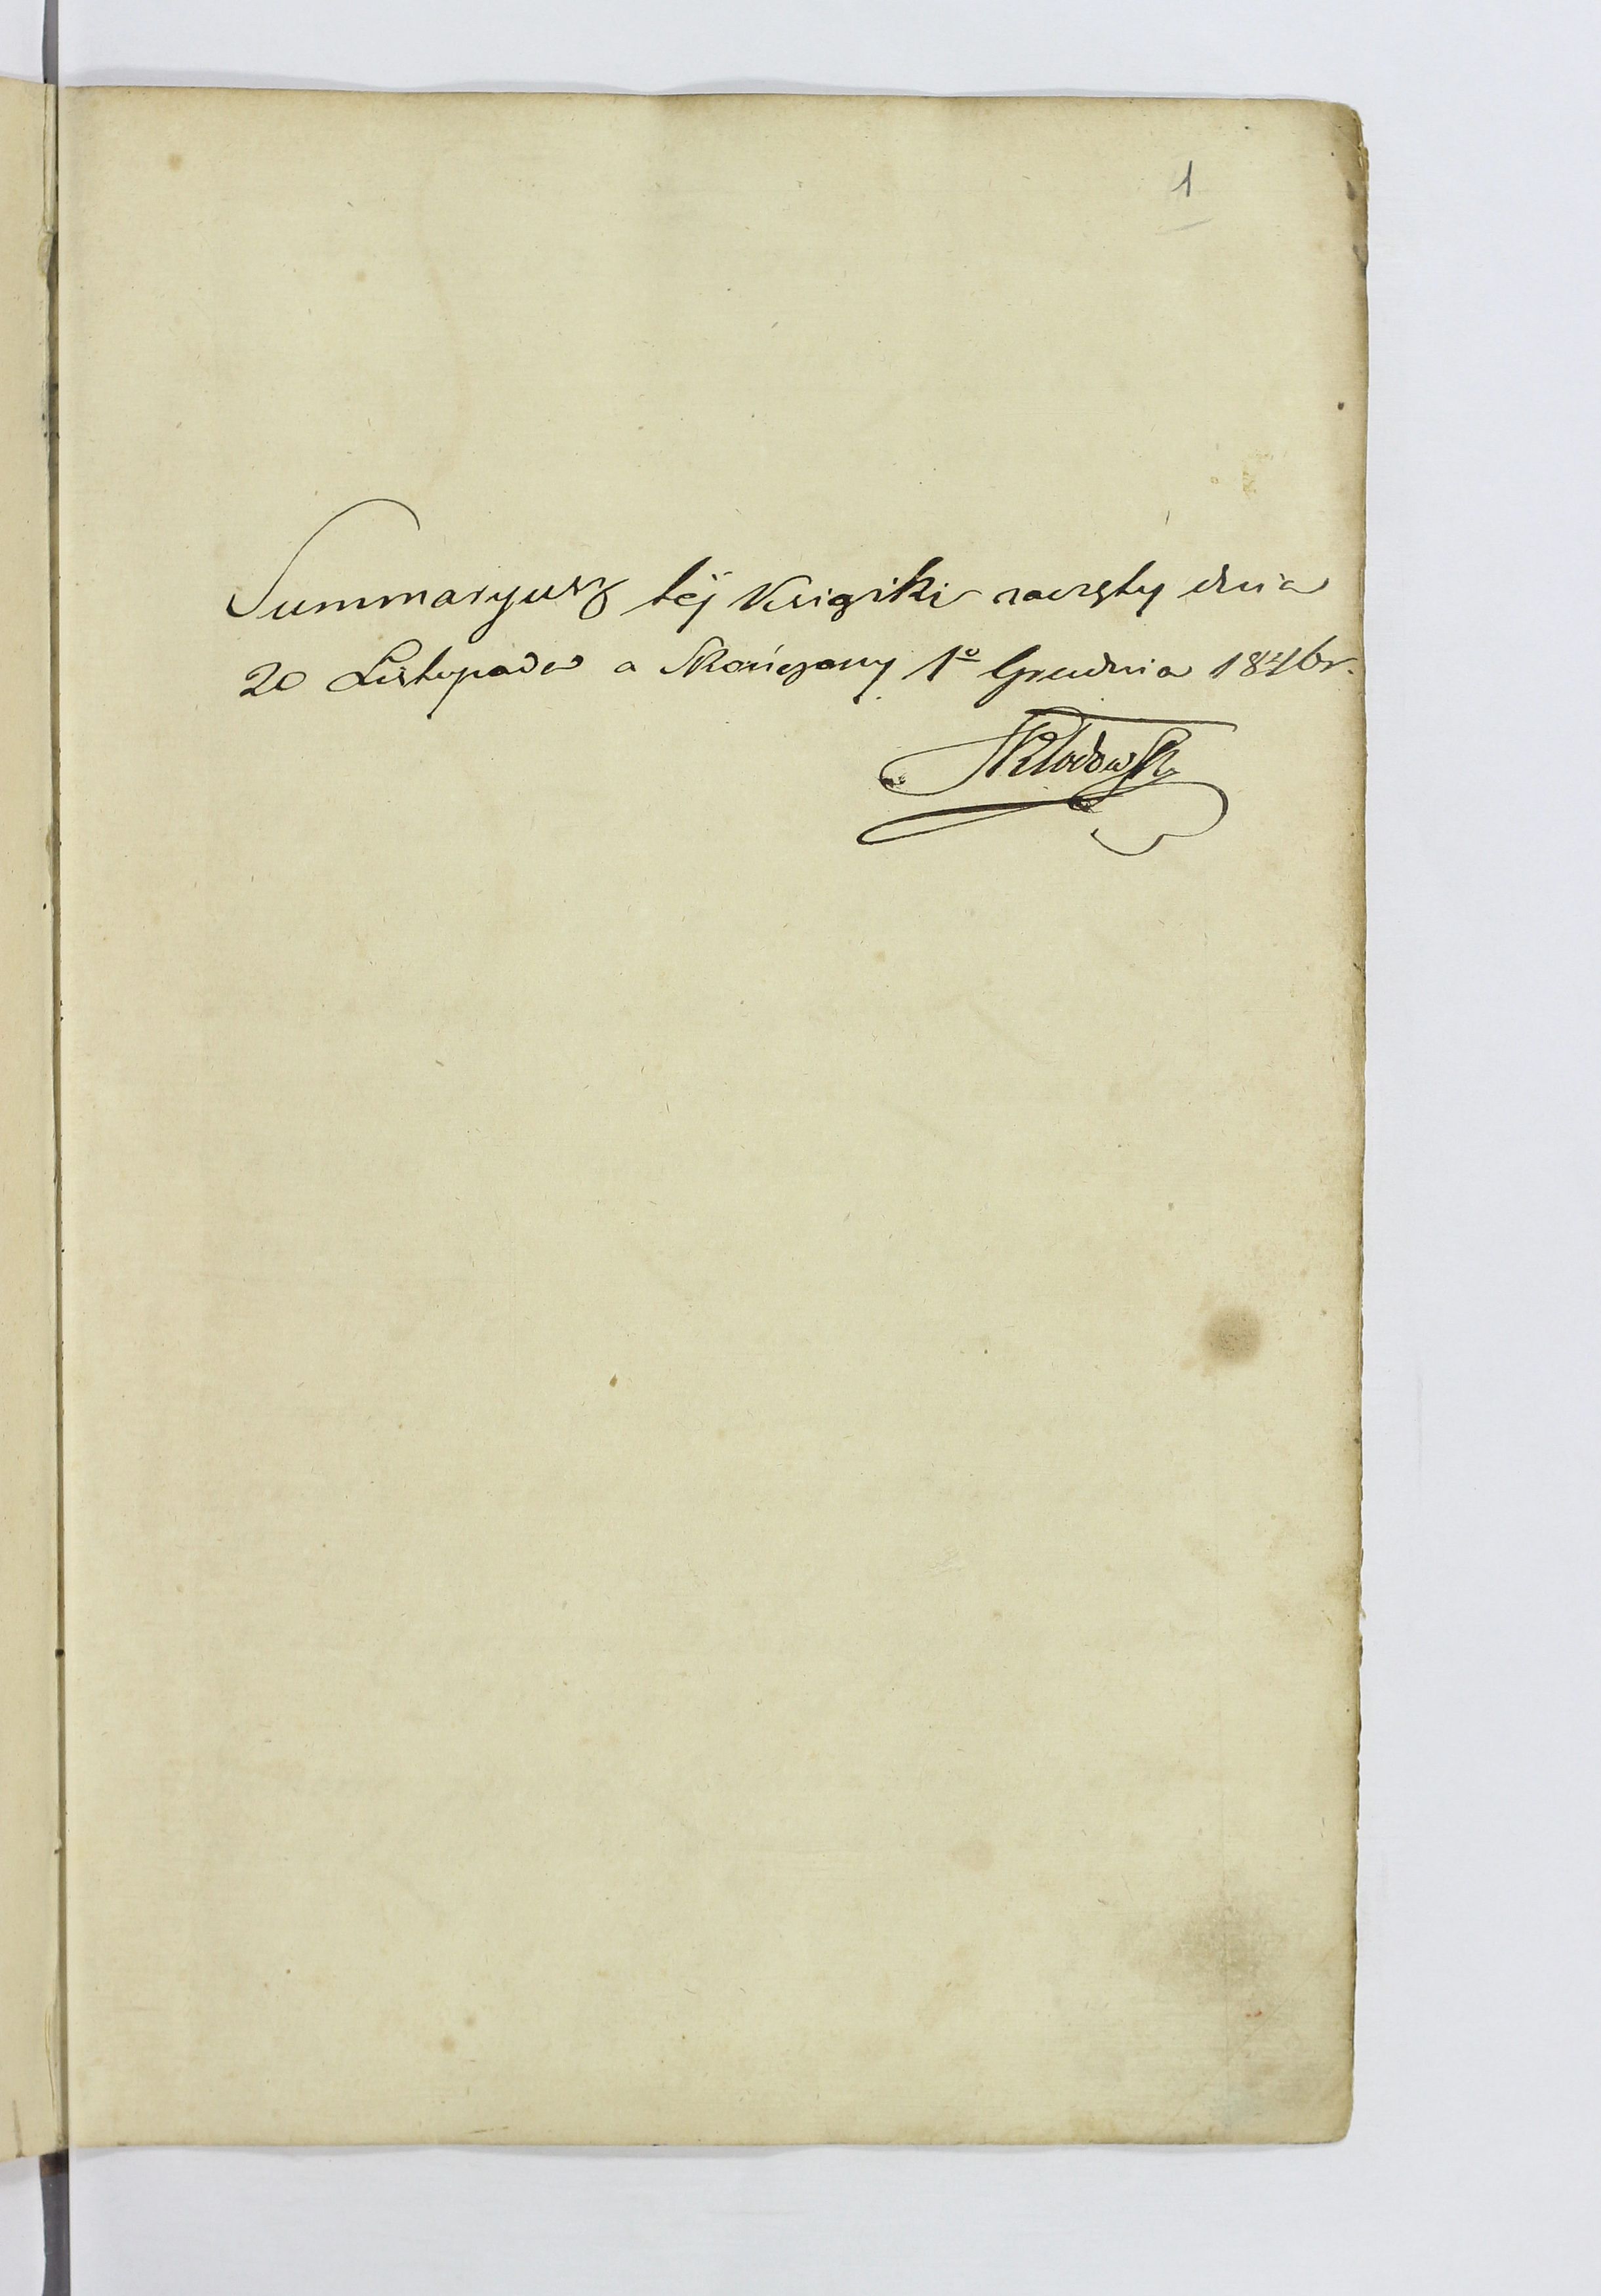 1
Summaryusz téj Książki zaczęty dnia
20 Listopada a Skończony 1º Grudnia 1846 r.
Skłodowski